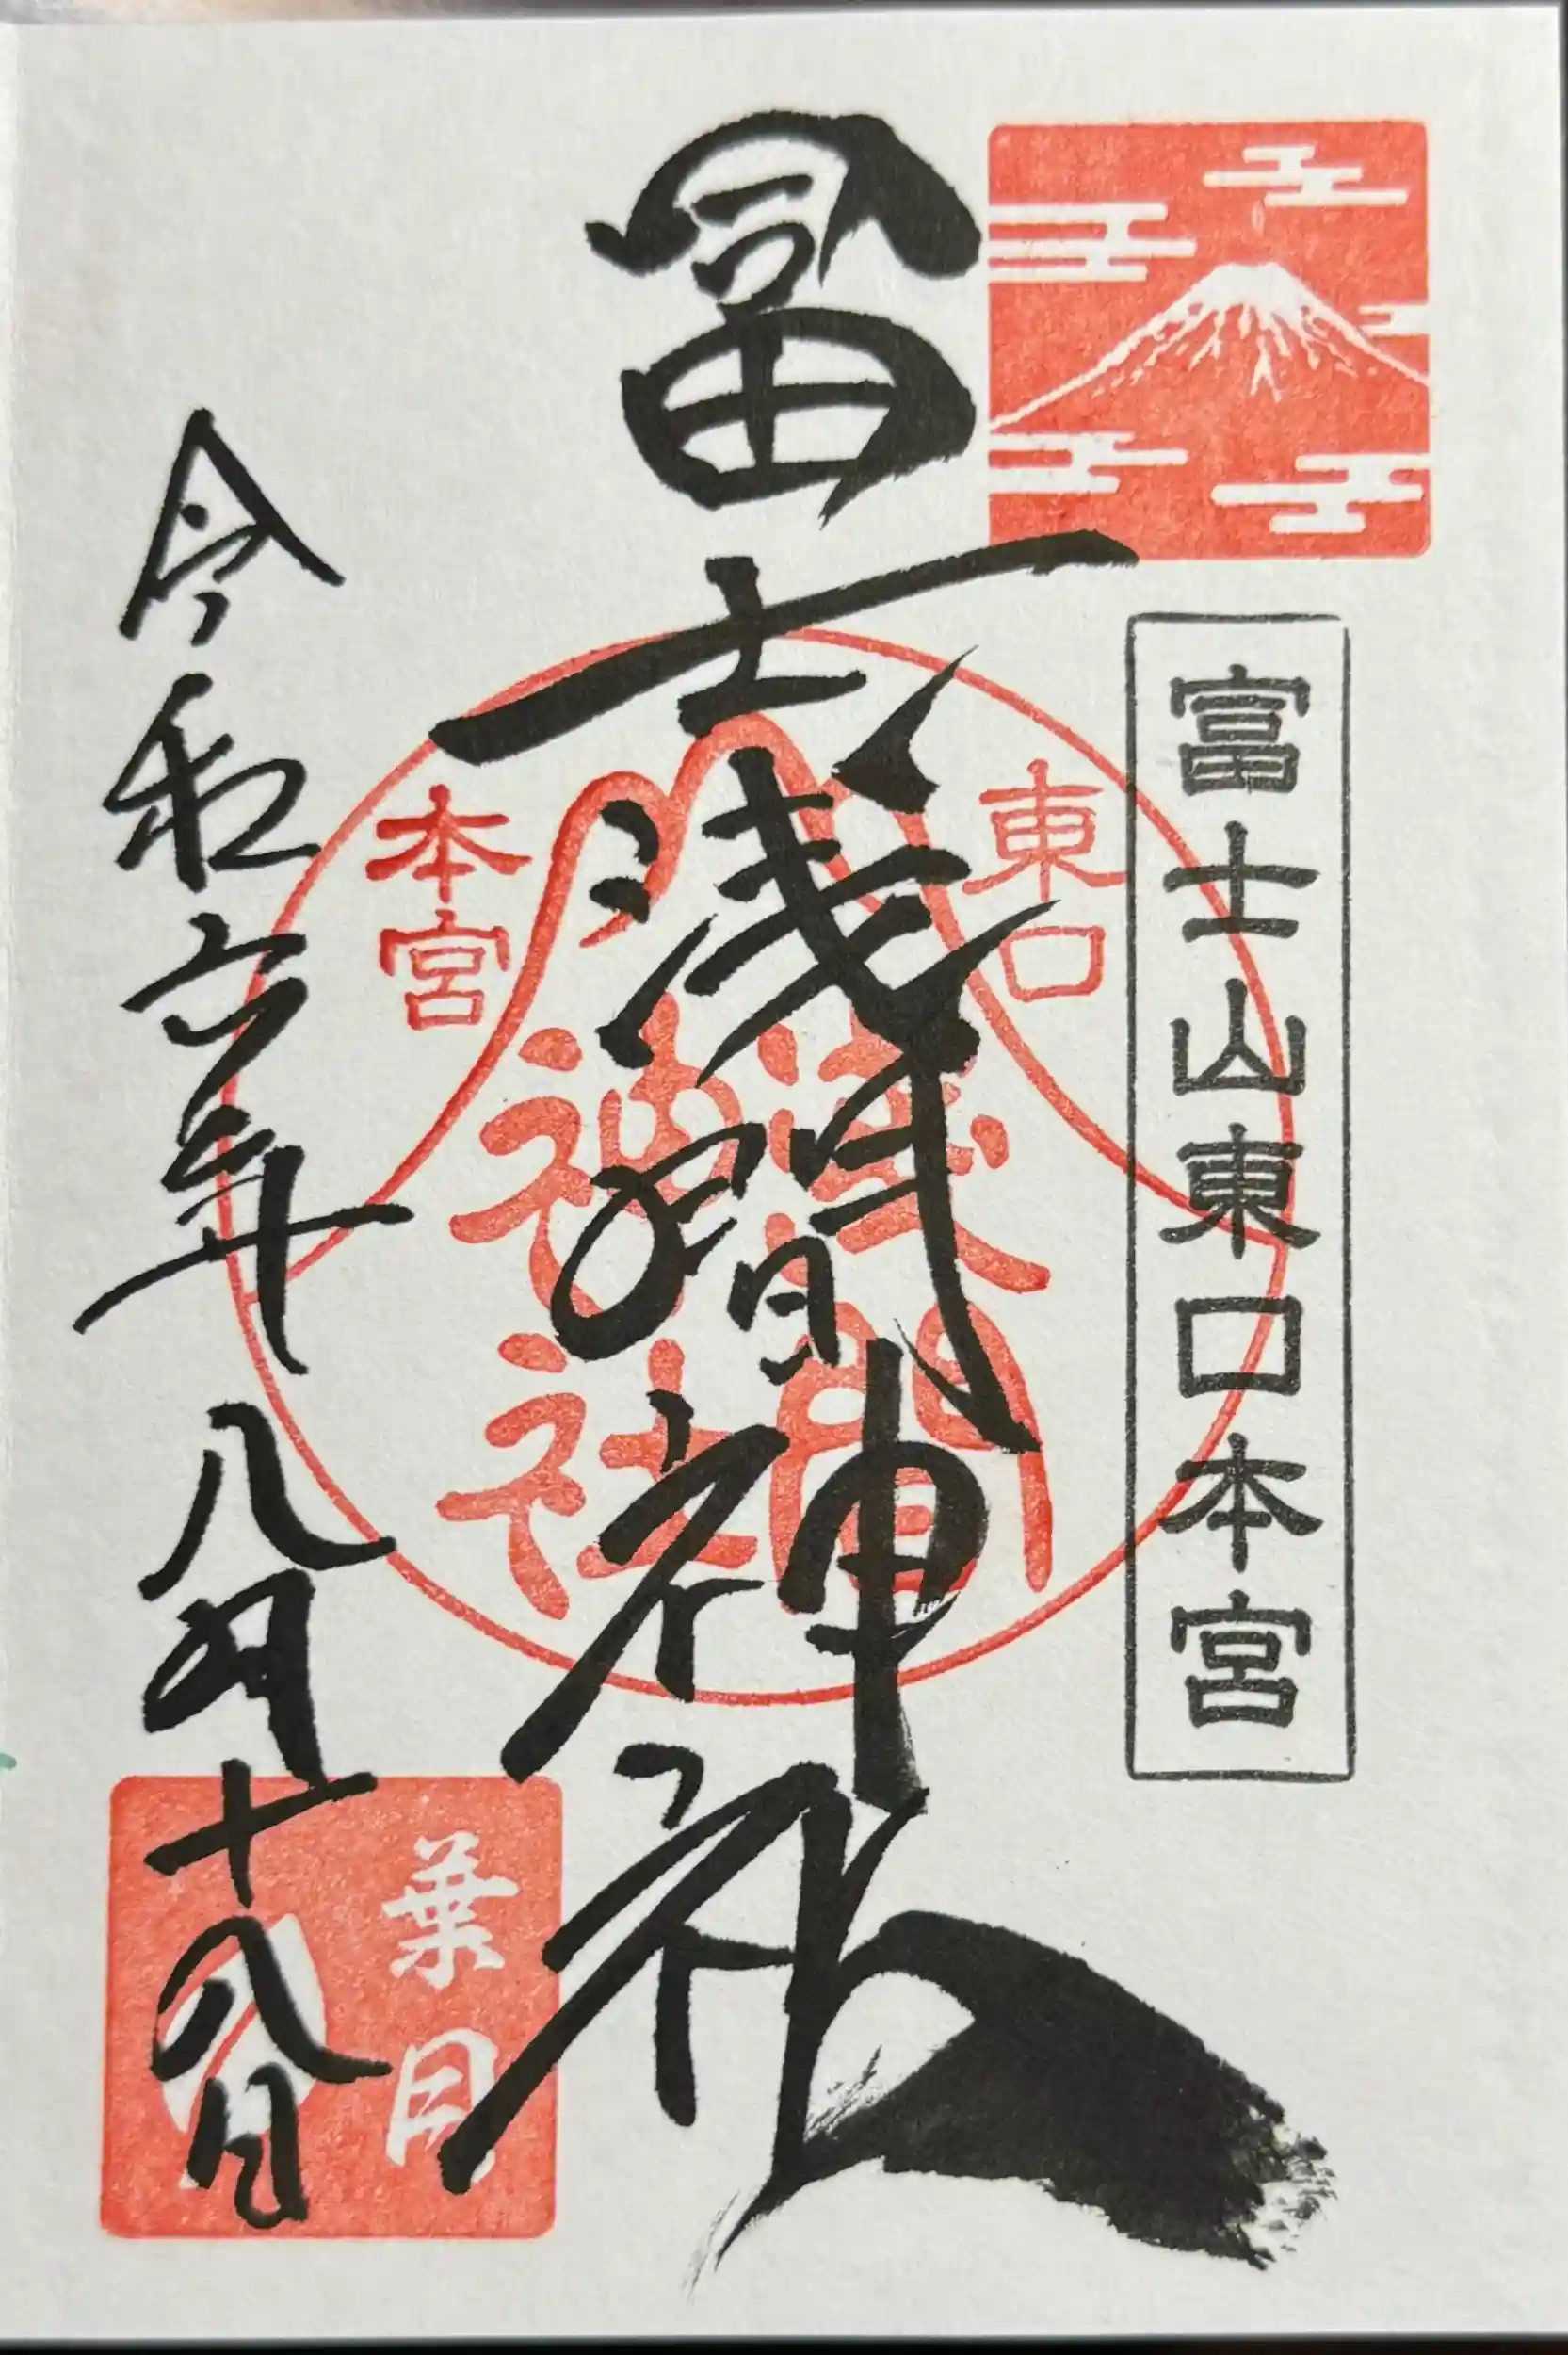 富士山東口本宮
冨士浅間神社
東口
本宮
浅間
神社
令和六年八月十八日
葉月